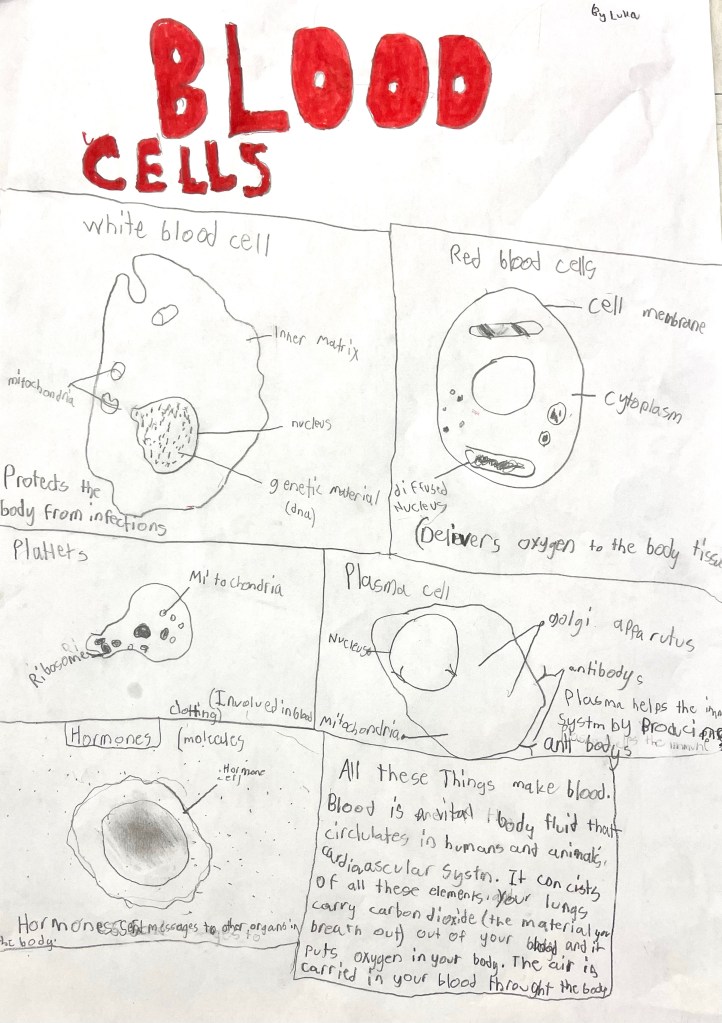 By Luka
BLOOD
CELLS
White blood cell
Inner Matrix
mitochondria
nucleus
genetic material
(dna)
Protects the
body from infections
Red blood cells
cell membrane
Cytoplasm
diffused
Nucleus
(Delivers oxygen to the body tissu
Platlets
Mitochondria
Ribosomes
(Involved in blood
clotting
Plasma cell
golgi apparutus
Nucleus
antibodys
Mitochondria
Plasma helps the imm
systm by Producing
anti bodys
Hormones (molecules
Hormone
cell
Hormones sent messages to other organs in
the body.
All these Things make blood.
Blood is vital body fluid that
circlulates in humans and animals,
cardiavascular systm. It concists
of all these elements. Your lungs
carry carbon dioxide (the material you
breath out) out of your blood and it
puts oxygen in your body. The air is
carried in your blood throught the body